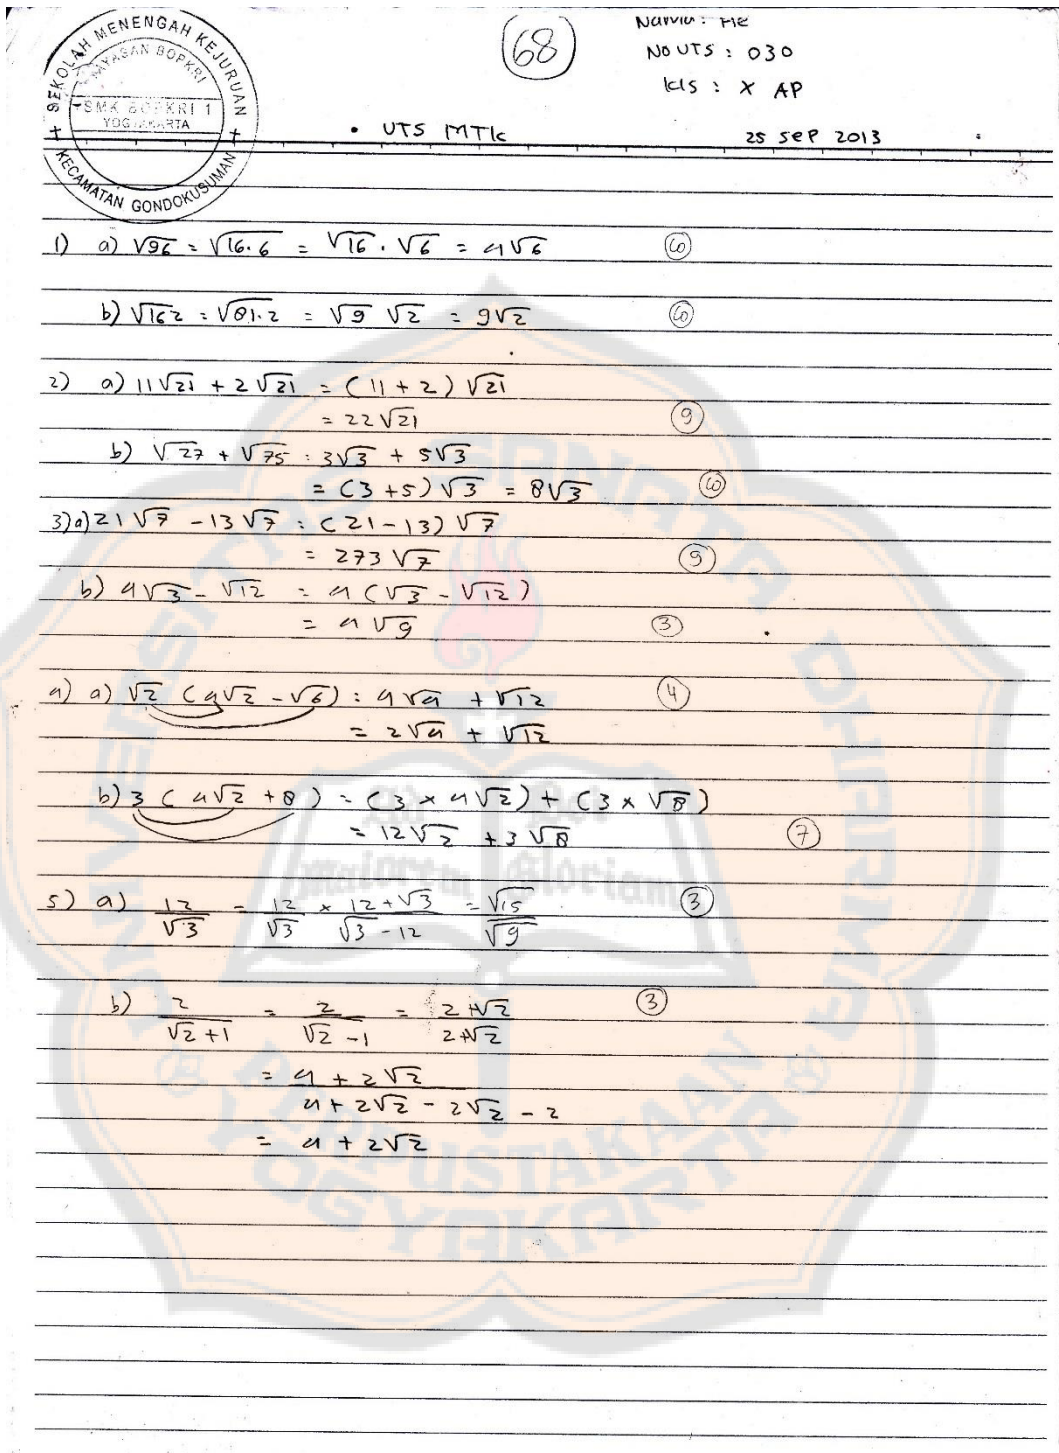 SEKOLAH MENENGAH KEJURUAN
YAYASAN BOPKRI
SMK BOPKRI 1
YOGYAKARTA
KECAMATAN GONDOKUSUMAN
68
Nama : He
No UTS : 030
Kls : X AP
• UTS MTK 25 SEP 2013
1) a) √96 = √16.6 = √16 . √6 = 4√6 10
b) √162 = √81.2 = √9 √2 = 9√2 10
2) a) 11√21 + 2√21 = (11 + 2) √21
= 22√21 9
b) √27 + √75 = 3√3 + 5√3
= (3 +5)√3 = 8√3 10
3) a) 21√7 - 13√7 = (21-13) √7
= 273√7 9
b) 4√3 - √12 = 4(√3 - √12)
= 4√9 3
4) a) √2 (4√2 - √6) = 4√4 + √12 4
= 2√4 + √12
b) 3 ( 4√2 + 8 ) = (3 × 4√2) + (3 × √8)
= 12√2 + 3√8 7
5) a) 12/√3 = 12/√3 × 12+√3/√3-12 = √15/√9 3
b) 2/√2+1 = 2/√2-1 = 2+√2/2+√2 3
= 4 + 2√2/4 + 2√2 - 2√2 - 2
= 4 + 2√2
UNIVERSITAS SANATA DHARMA
Ad Dei
maiorem Gloriam
PERPUSTAKAAN
YOGYAKARTA